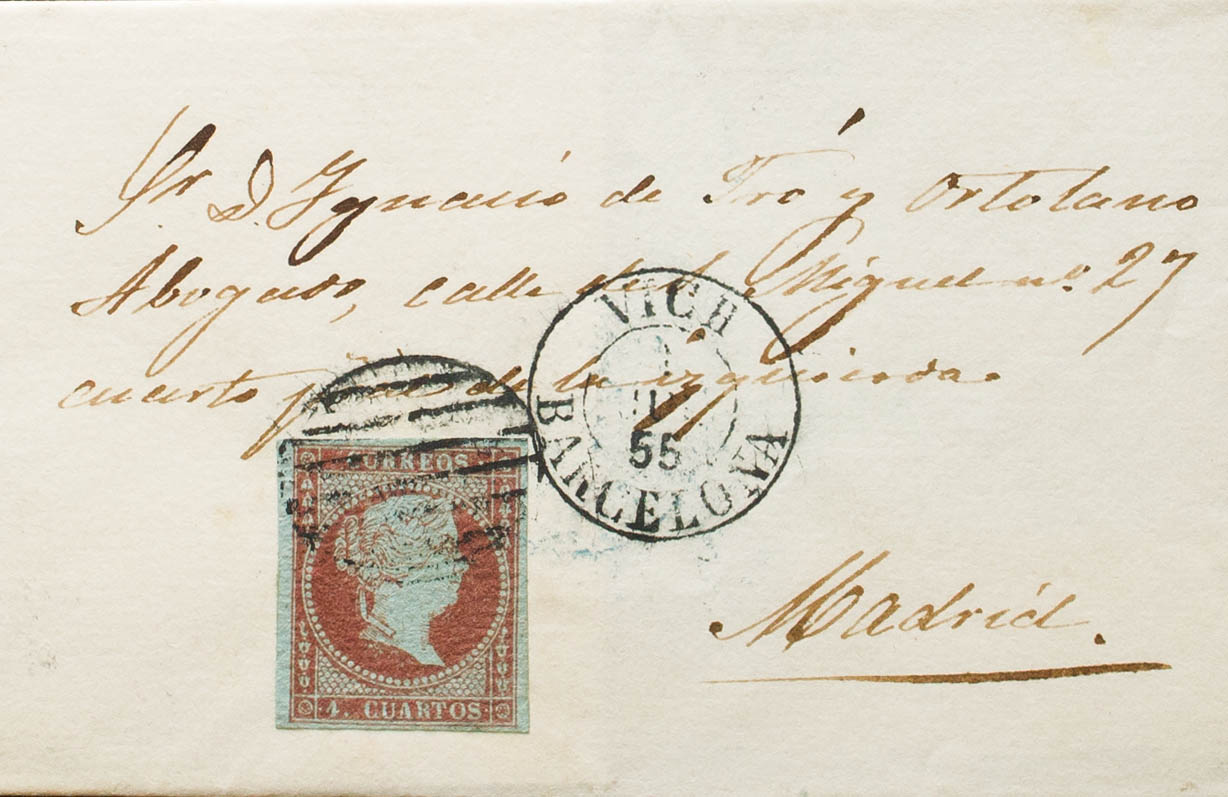 Sr. D. Ygnacio de Tró y Ortolano
Abogado, calle de S. Miguel no. 27
cuarto de la izquierda.
VICH
55
BARCELONA
CORREOS
4. CUARTOS
Madrid.